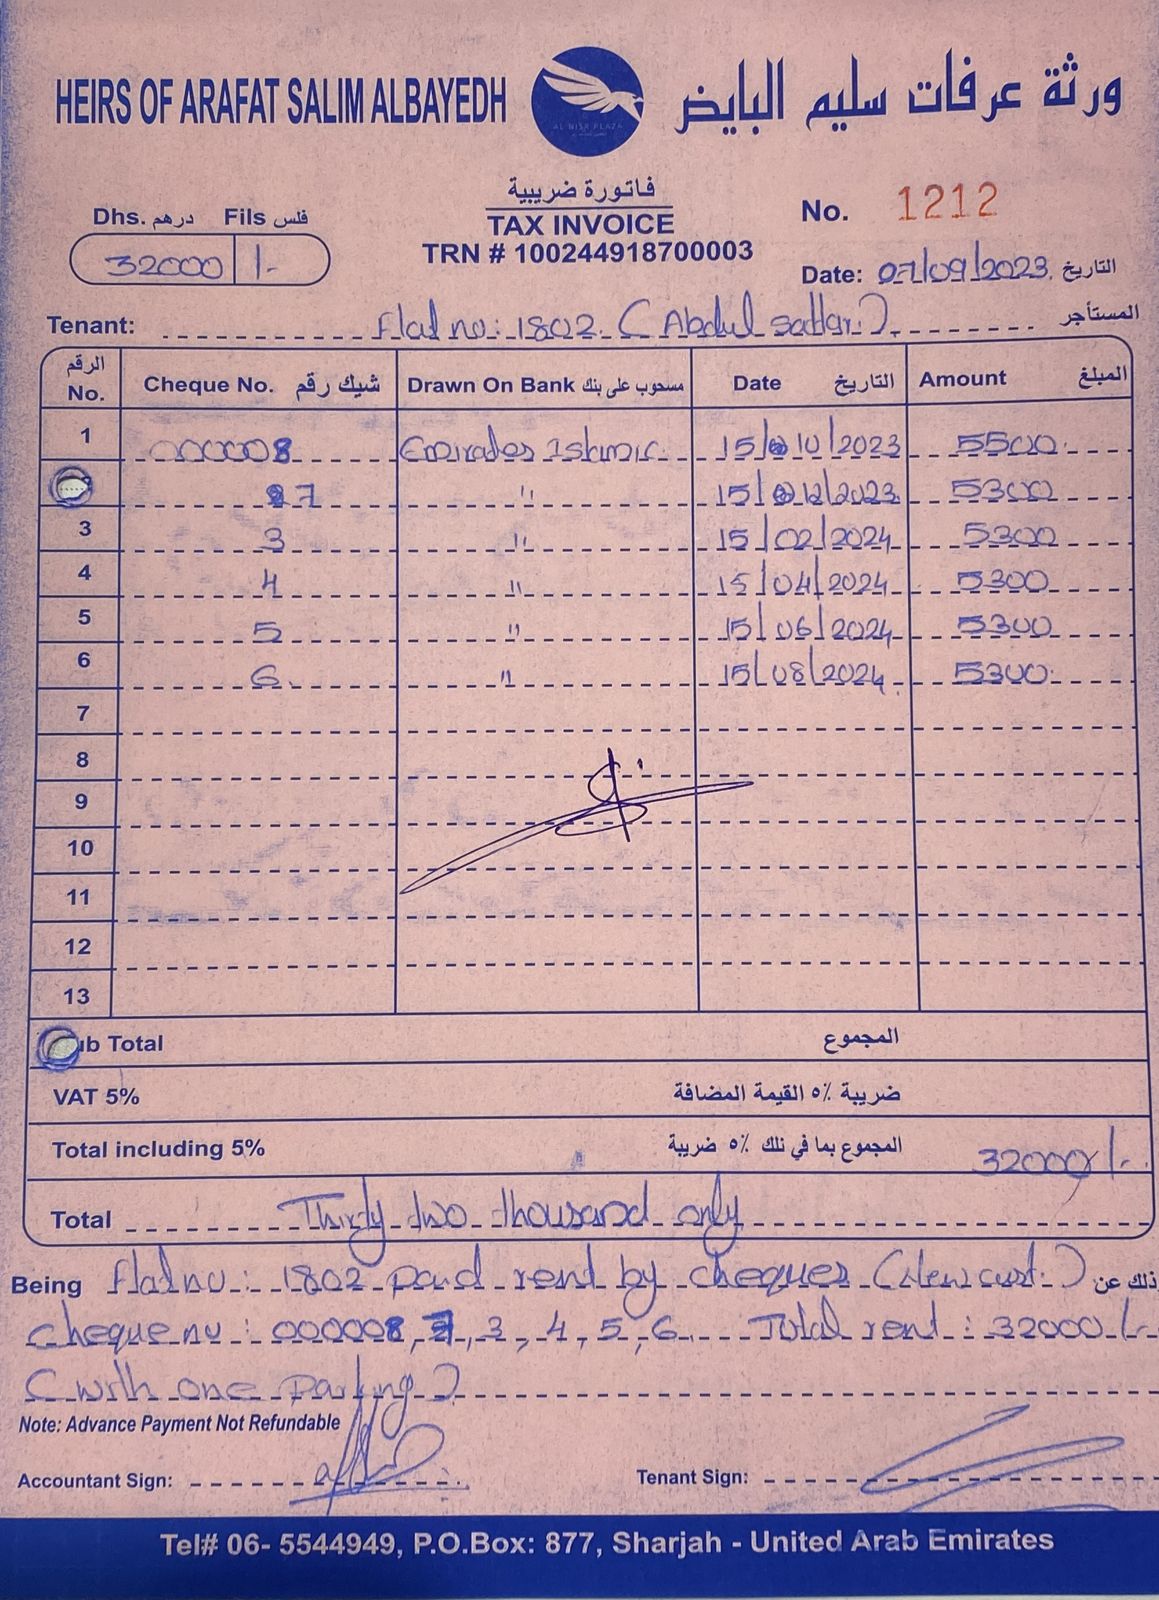 HEIRS OF ARAFAT SALIM ALBAYEDH
AL NISR PLAZA
ورثة عرفات سليم البايض
فاتورة ضريبية
TAX INVOICE
TRN # 100244918700003
Dhs. درهم Fils فلس
32000 /-
No. 1212
Date: 07/09/2023 التاريخ
Tenant: Flat no: 1802 (Abdul sattar) المستأجر
الرقم No. Cheque No. شيك رقم Drawn On Bank مسحوب على بنك Date التاريخ Amount المبلغ
1 000008 Emirates Islamic 15/10/2023 5500
7 " 15/12/2023 5300
3 3 " 15/02/2024 5300
4 4 " 15/04/2024 5300
5 5 " 15/06/2024 5300
6 6 " 15/08/2024 5300
7
8
9
10
11
12
13
ub Total المجموع
VAT 5% ضريبة ٥٪ القيمة المضافة
Total including 5% المجموع بما في ذلك ٥٪ ضريبة 32000/-
Total Thirty two thousand only
Being Flat no: 1802 paid rent by cheques (New cust:) وذلك عن
cheque no: 000008, 7, 3, 4, 5, 6 Total rent: 32000/-
(with one parking)
Note: Advance Payment Not Refundable
Accountant Sign: Tenant Sign:
Tel# 06- 5544949, P.O.Box: 877, Sharjah - United Arab Emirates